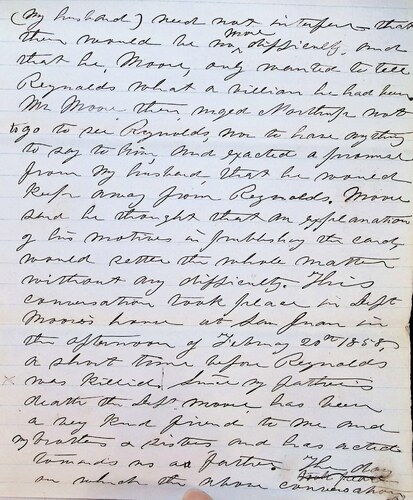 (my husband) need not interfere that
there would be no more difficulty, and
that he, Moore, only wanted to tell
Reynolds what a villian he had been
Mr Moore then urged Northrup not
to go to see Reynolds, nor to have anything
to say to him, and exacted a promise
from my husband, that he would
keep away from Reynolds. Moore
said he thought that an explanation
of his motives in publishing the card
would settle the whole matter
without any difficulty. This
conversation took place in
Moore's house at San Juan in
the afternoon of February 20th 1858,
a short time before Reynolds
x was killed. Since my father's
death the Moore has been
a very kind friend to me and
my brothers & sisters and has acted
towards us as father. day
on which the above conversation
took place